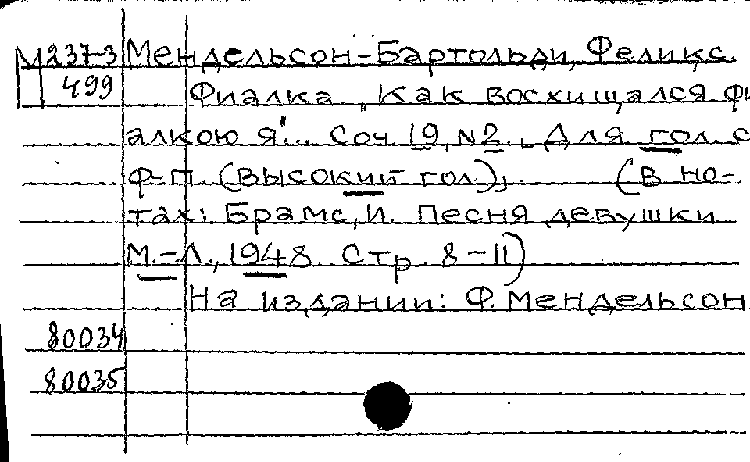 М 237-3 Мендельсон-Бартольди, Феликс.
499 Фиалка „Как восхищался фи
алкою я"... Соч. 19, №2. Для гол. с
ф-п. (высокий гол.), (В но-
тах: Брамс, И. Песня девушки
М.-Л., 1948. Стр. 8-11)
На издании: Ф. Мендельсон
80034
80035